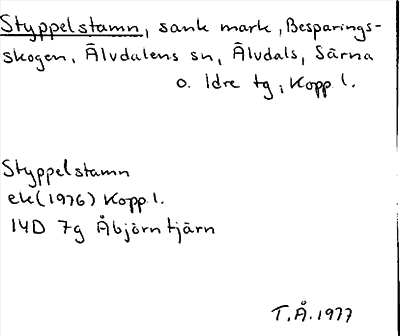 Styppelstamn, sank mark, Besparings-
skogen, Älvdalens sn, Älvdals, Särna
o. Idre tg, Kopp l.
Styppelstamn
ek (1976) Kopp l.
14D 7g Åbjörntjärn
T.Å. 1977